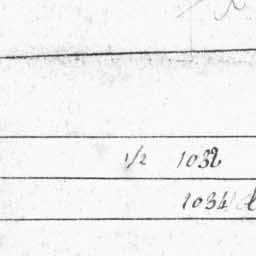 1/2 1032
1034